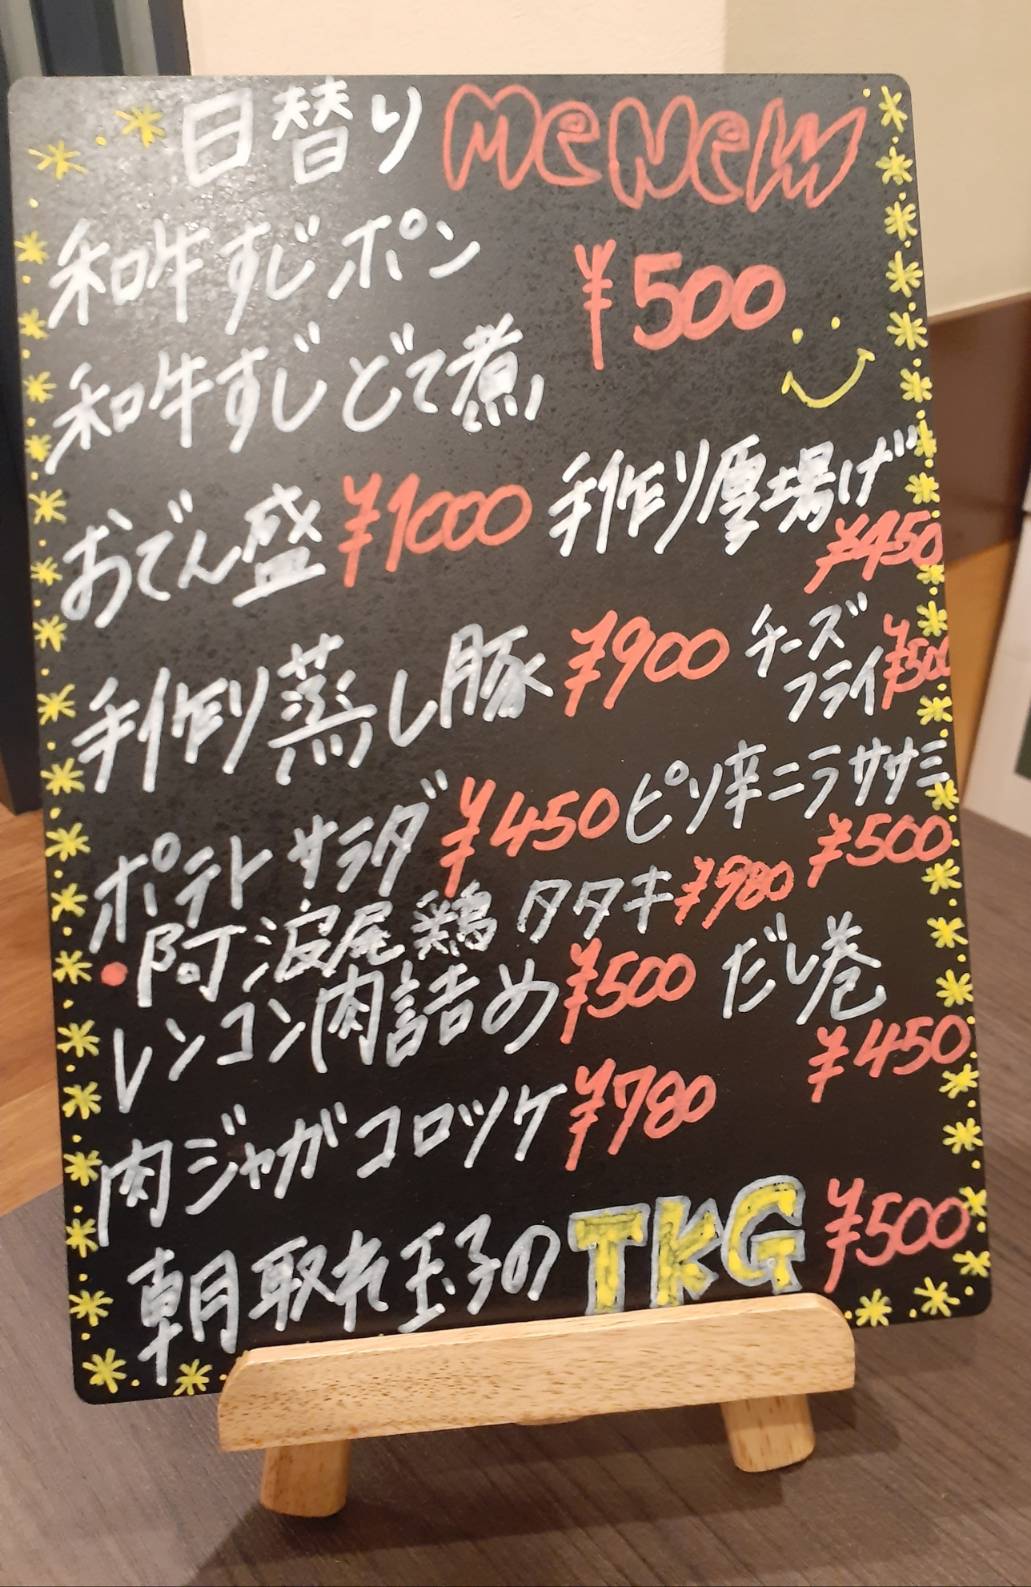 日替り MeNew
和牛すじポン ¥500
和牛すじどて煮
おでん盛 ¥1000
手作り厚揚げ ¥450
手作り蒸し豚 ¥900
チーズフライ ¥500
ポテトサラダ ¥450
ピリ辛ニラササミ ¥500
・阿波尾鶏 タタキ ¥980
レンコン肉詰め ¥500
だし巻 ¥450
肉ジャガコロッケ ¥780
朝取れ玉子のTKG ¥500